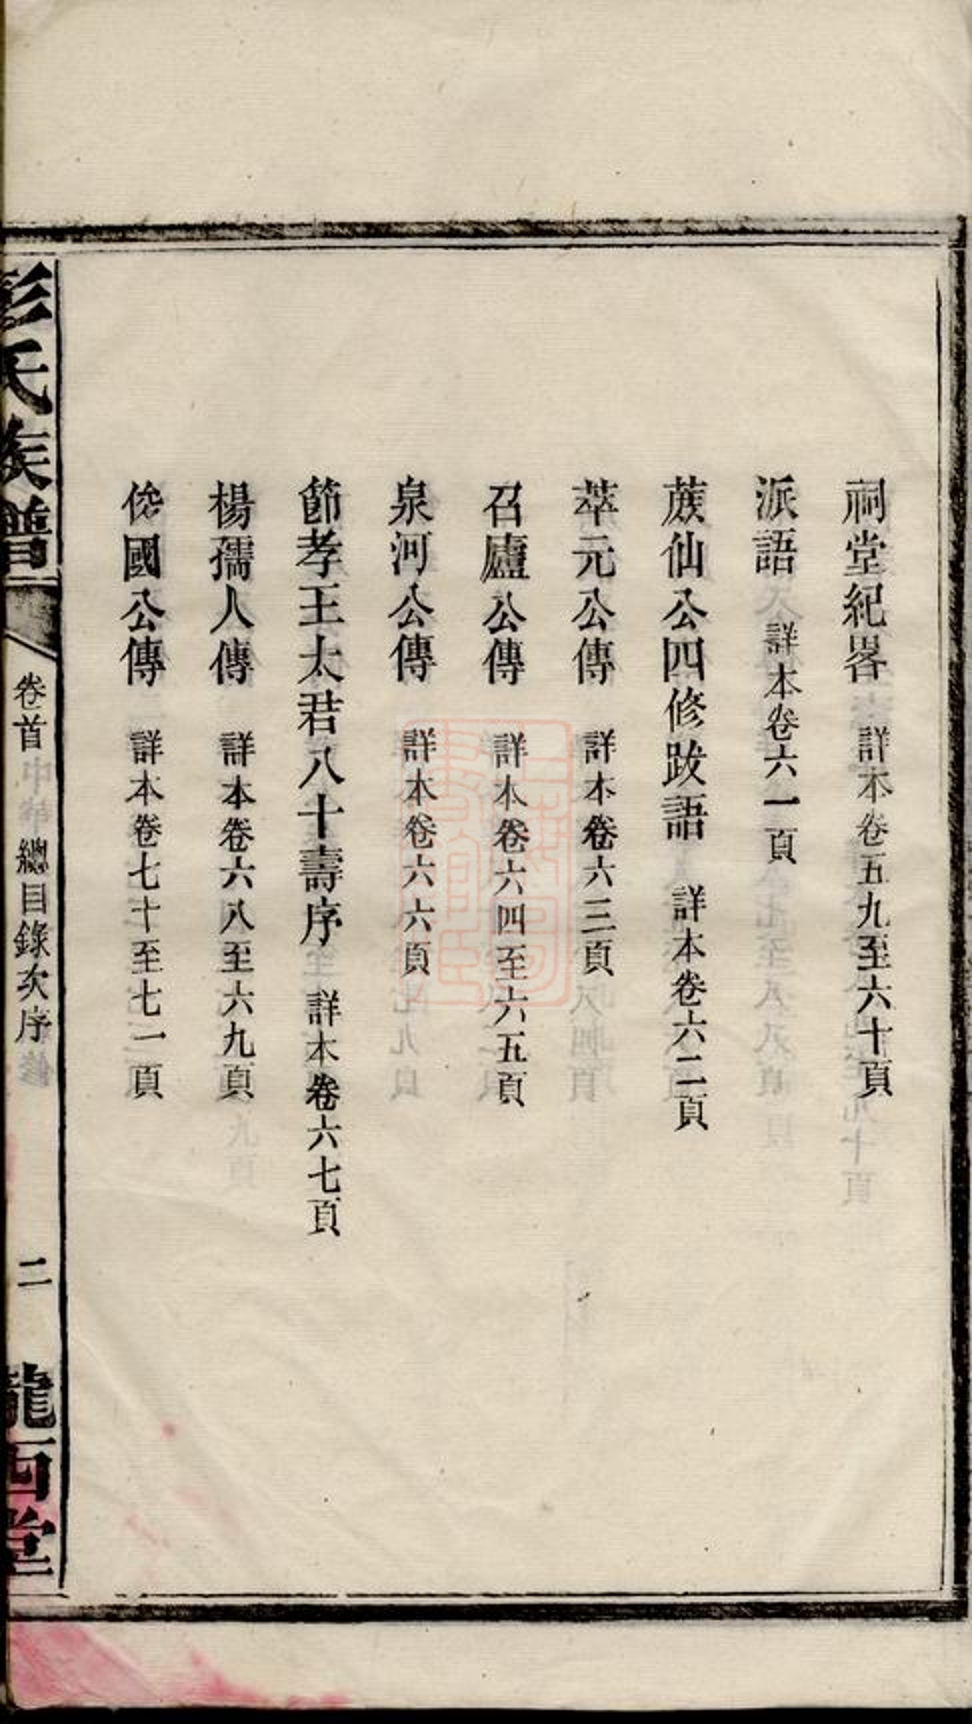 祠堂紀畧 詳本卷五九至六十頁
派語 詳本卷六一頁
蔟仙公四修跋語 詳本卷六二頁
萃元公傳 詳本卷六三頁
召廬公傳 詳本卷六四至六五頁
泉河公傳 詳本卷六六頁
節孝王太君八十壽序 詳本卷六七頁
楊孺人傳 詳本卷六八至六九頁
國公傳 詳本卷七十至七一頁
彭氏族譜 卷首 總目錄次序 二 隴西堂